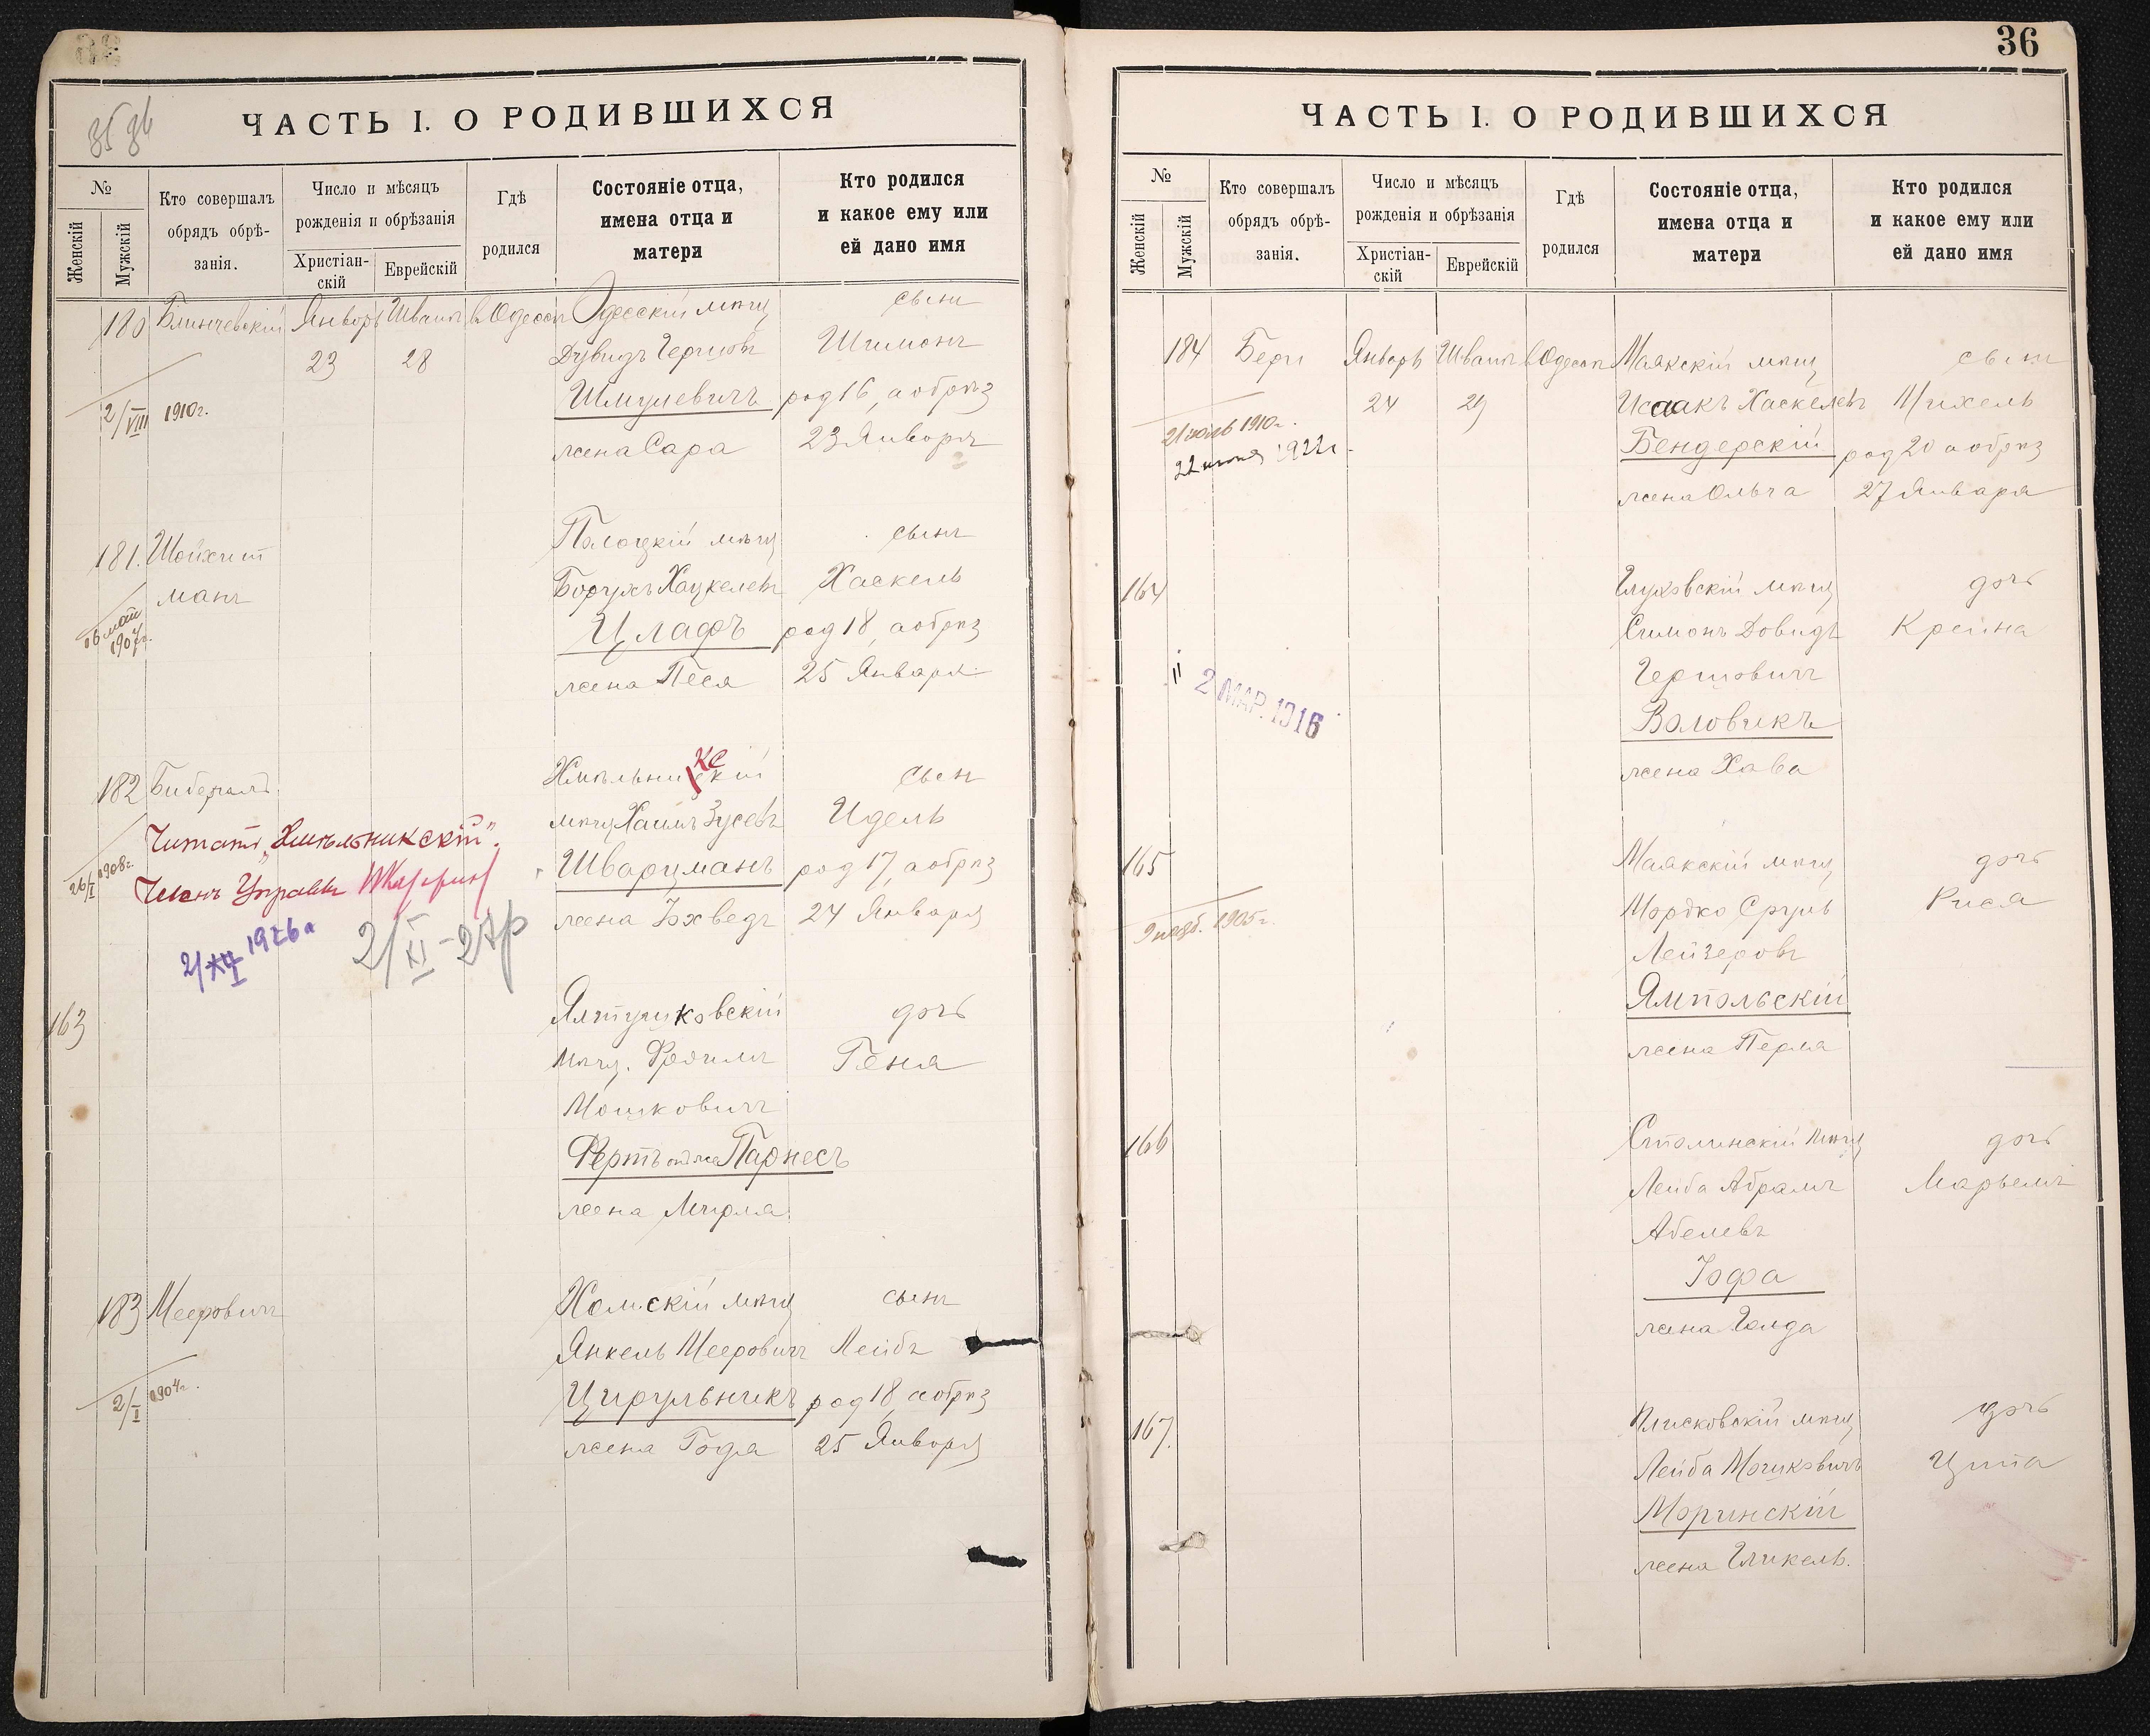 35 36
ЧАСТЬ I. О РОДИВШИХСЯ
№
Женскій
Мужскій
Кто совершалъ
обрядъ обрѣ-
занія.
Число и мѣсяцъ
рожденія и обрѣзанія
Христіан-
скій
Еврейскій
Гдѣ
родился
Состояніе отца,
имена отца и
матери
Кто родился
и какое ему или
ей дано имя
180 Блинчевскій Январь Шватъ в Одессѣ Одесскій мѣщ сынъ
23 28 Дувидъ Гершовъ Шимонъ
2/VIII 1910г. Шмулевичъ род 16, а обрѣз
жена Сара 23 Января
181. Шойхит Полоцкій мѣщ сынъ
манъ Борухъ Хацкелевъ Хаскель
16 май 1907г. Цлафъ род 18, а обрѣз
жена Песя 25 Января
182 Хмѣльницкій кс сын
Читать „Хмѣльникскій".
мѣщ Хаимъ Зусевъ Идель
26/I 1908г. Шварцманъ род 17, а обрѣз
Членъ Управы
жена Іохведъ 24 Января
2/XI 1926г 2/XI-27р
163 Ялтушковскій дочь
мѣщ. Фроимъ Геня
Мошковичъ
Фертъ онъ же Парнесъ
жена Мирля
183 Мееровичъ Хомскій мѣщ сынъ
Янкель Мееровичъ Лейбъ
2/I 1904г. Цирульникъ род 18, а обрѣз
жена Года 25 Января
36
ЧАСТЬ I. О РОДИВШИХСЯ
№
Женскій
Мужскій
Кто совершалъ
обрядъ обрѣ-
занія.
Число и мѣсяцъ
рожденія и обрѣзанія
Христіан-
скій
Еврейскій
Гдѣ
родился
Состояніе отца,
имена отца и
матери
Кто родился
и какое ему или
ей дано имя
184 Январь Шватъ в Одессѣ Маякскій мѣщ сынъ
24 29 Исаакъ Хаскелевъ Михель
21 июль 1910г. Бендерскій род 20 а обрѣз
22 1922г.
жена Ольга 27 Января
164 Глуховскій мѣщ дочь
Симонъ Довидъ Крейна
Гершовичъ
2 МАР. 1916
Воловикъ
жена Хава
165 Маякскій мѣщ дочь
Мордко Сруль Рися
1905г.
Лейзеровъ
Ямпольскій
жена Перля
166 Столинскій мѣщ дочь
Лейба Абрамъ Марьемъ
Абелевъ
Іофа
жена Голда
167. Плисковскій мѣщ дочь
Лейба Мошковичъ Ципа
Моринскій
жена Гликель.